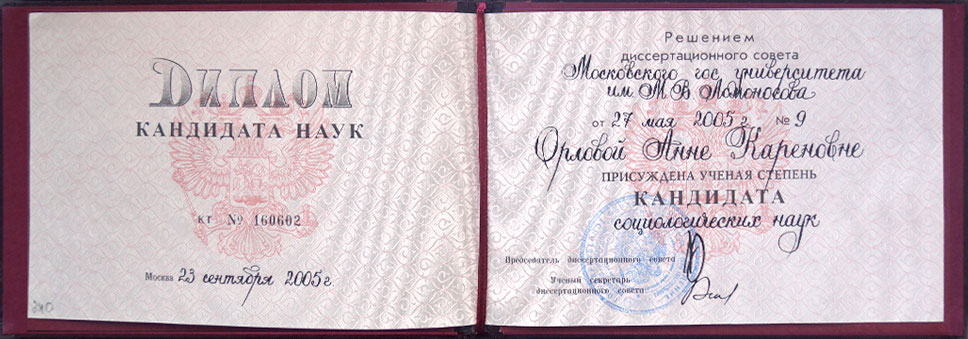 ДИПЛОМ
КАНДИДАТА НАУК
КТ № 160602
Москва 23 сентября 2005 г.
Решением
диссертационного совета
Московского гос университета
им М В Ломоносова
от 27 мая 2005 г № 9
Орловой Анне Кареновне
ПРИСУЖДЕНА УЧЕНАЯ СТЕПЕНЬ
КАНДИДАТА
социологических наук
Председатель диссертационного совета
Ученый секретарь
диссертационного совета